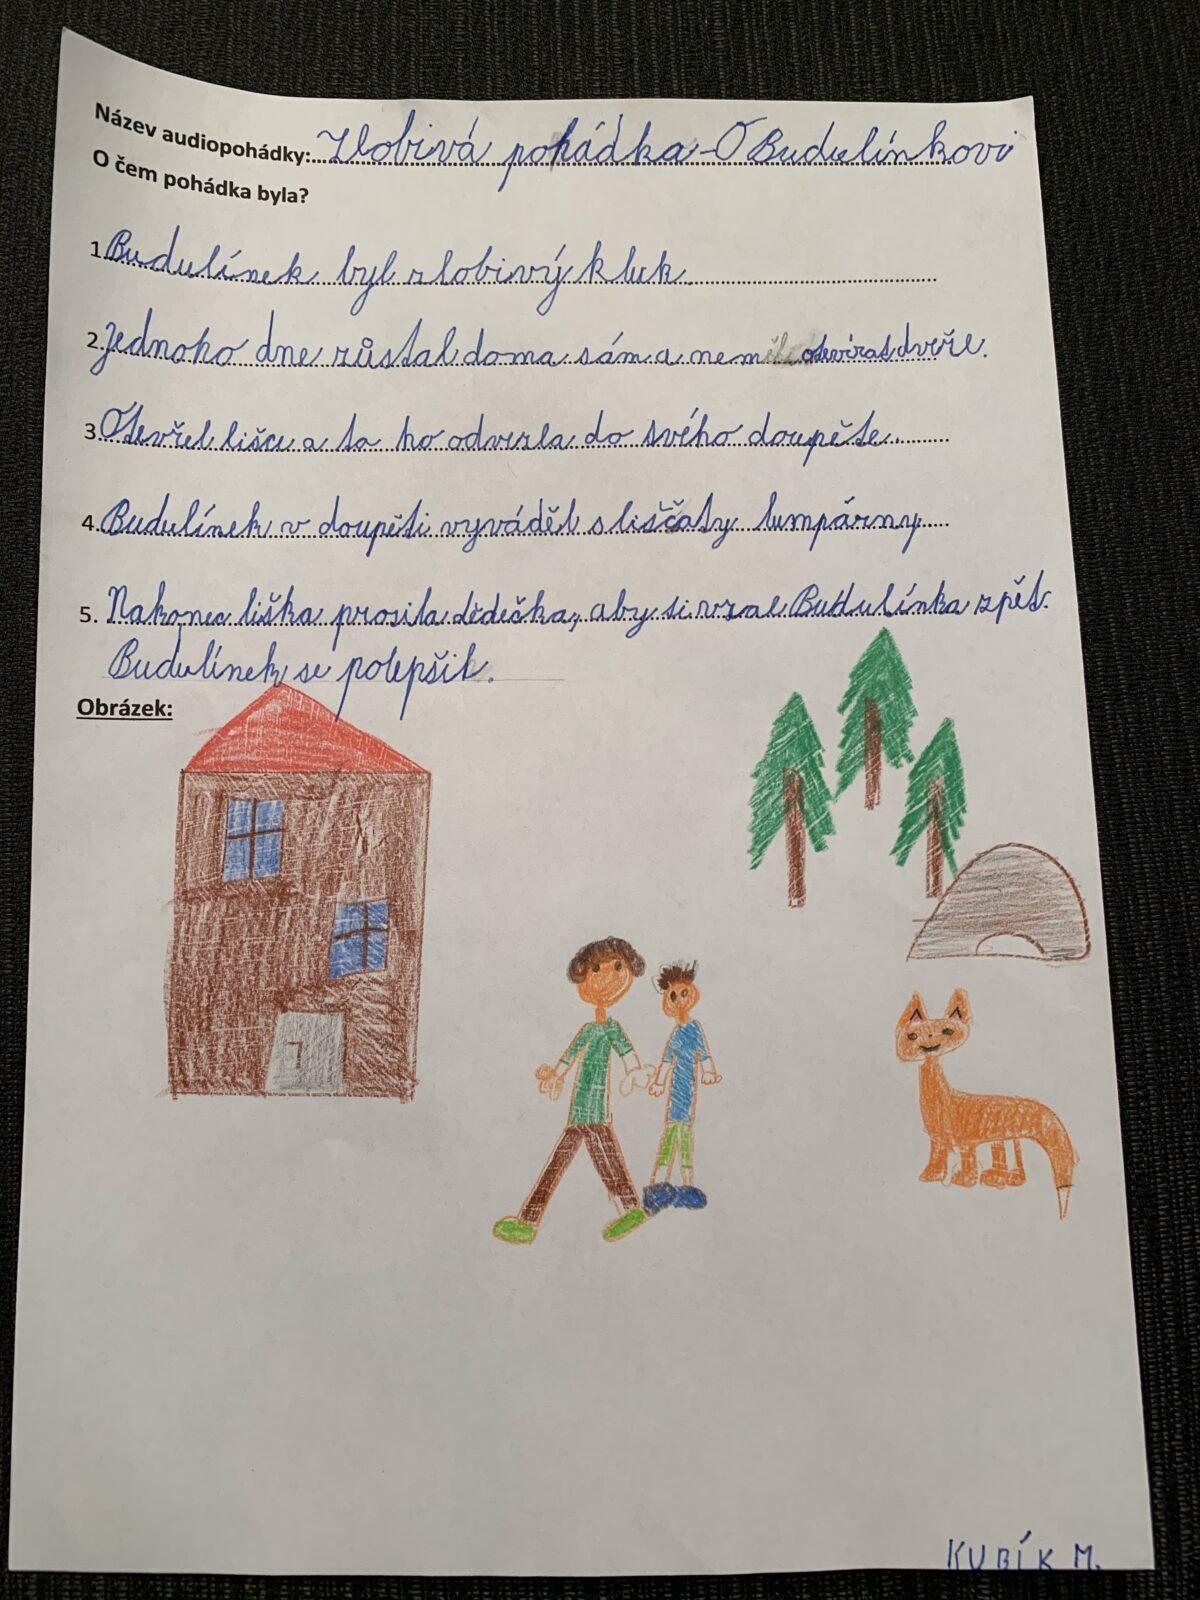 Název audiopohádky: Zlobivá pohádka - O Budulínkovi
O čem pohádka byla?
1. Budulínek byl zlobivý kluk.
2. Jednoho dne zůstal doma sám a neměl otevírat dveře.
3. Otevřel lišce a ta ho odvezla do svého doupěte.
4. Budulínek v doupěti vyváděl s liščaty lumpárny
5. Nakonec liška prosila dědečka, aby si vzal Budulínka zpět.
Budulínek se polepšil.
Obrázek:
KUBÍK M.